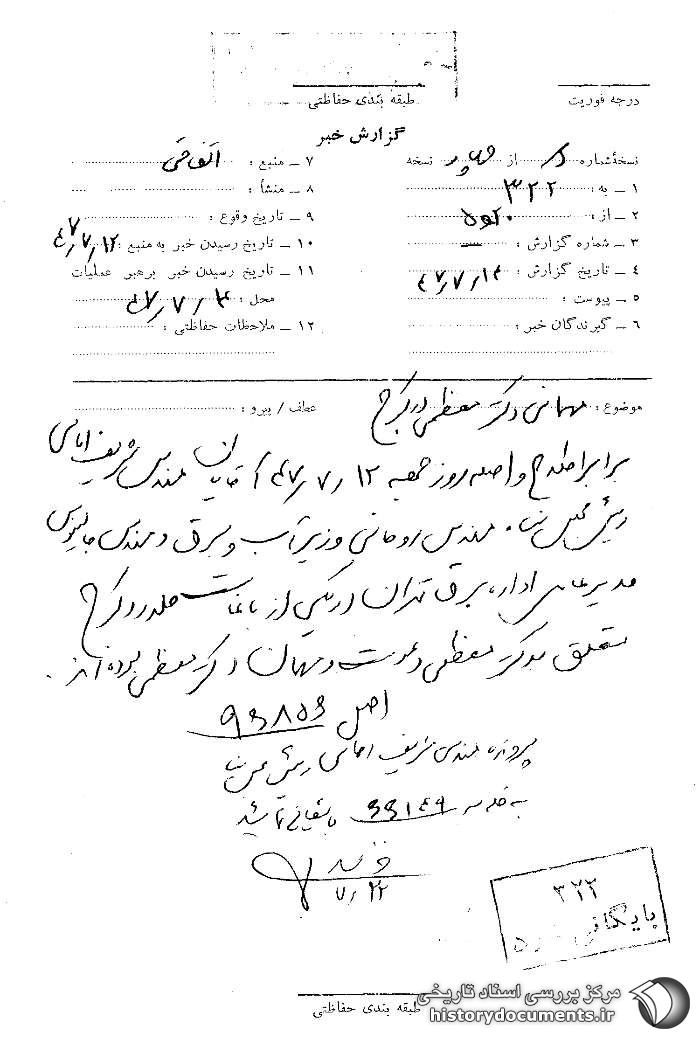 طبقه بندی حفاظتی
درجه فوریت
گزارش خبر
نسخهٔ شماره از نسخه
۱ – به: ۳۲۲
۲ – از: ۲۰ ه‍ ۵
۳ – شماره گزارش: –
۴ – تاریخ گزارش: ۴۷٫۷٫۱۴
۵ – پیوست:
۶ – گیرندگان خبر:
۷ – منبع: اتفاقی
۸ – منشأ:
۹ – تاریخ وقوع:
۱۰ – تاریخ رسیدن خبر به منبع: ۴۷٫۷٫۱۲
۱۱ – تاریخ رسیدن خبر برهبر عملیات
محل: ۴۷٫۷٫۱۴
۱۲ – ملاحظات حفاظتی:
موضوع: مهمانی دکتر معظمی در کرج
عطف / پیرو:
برابر اطلاع واصله روز جمعه ۴۷٫۷٫۱۲ آقایان مهندس شریف امامی
رئیس مجلس سنا، مهندس روحانی وزیر آب و برق و مهندس جالینوس
مدیر عامل اداره برق تهران در یکی از باغات جاده کرج
متعلق بدکتر معظمی دعوت و مهمان دکتر معظمی بوده‌اند.
اصل ۹۳۸۵۳
پرونده مهندس شریف امامی رئیس مجلس سنا
به کلاسه ۳۳۱۴۹ بایگانی شود
۷٫۲۲
۳۲۲
بایگانی شود
طبقه بندی حفاظتی
مرکز بررسی اسناد تاریخی
historydocuments.ir